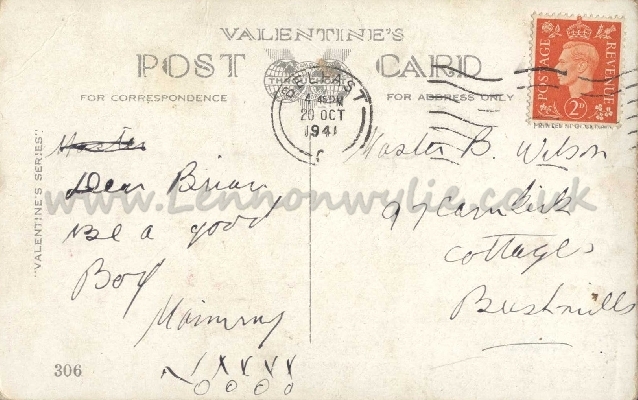 VALENTINE'S
POST CARD
FOR CORRESPONDENCE
FOR ADDRESS ONLY
BELFAST
20 OCT
1941
POSTAGE REVENUE
2D
"VALENTINE'S SERIES"
Master
Dear Brian
Be a good
Boy
Mammy
xxxxx
oooo
306
Master B. Wilson
97 Carnkirk
Cottages
Bushmills
www.Lennonwylie.co.uk